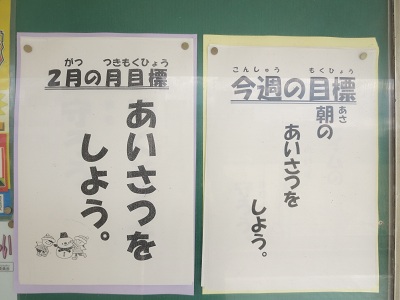 ２月の月目標
がつ つきもくひょう
あいさつを
しよう。
今週の目標
こんしゅう もくひょう
朝の
あさ
あいさつを
しよう。